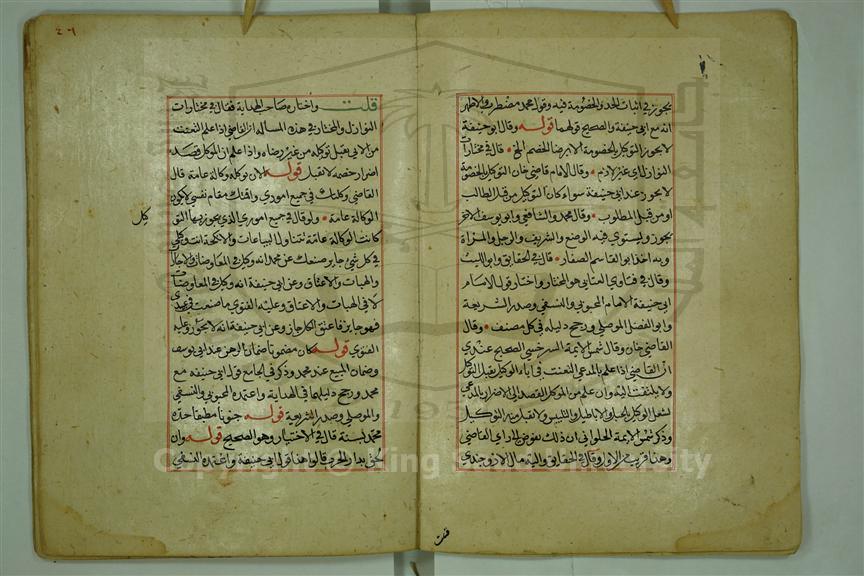 يجوز في اثبات الحد والخصومة فيه وقول محمد مضطرب والاظهر
انه مع ابي حنيفة والصحيح قولهما قوله وقال ابو حنيفة
لا يجوز التوكيل بالخصومة الا برضا الخصم الخ قال في مختارات
النوازل اي غير لازم وقال الامام قاضي خان التوكيل بالخصومة
لا يجوز عند ابي حنيفة سواء كان التوكيل من قبل الطالب
او من قبل المطلوب وقال محمد والشافعي وابو يوسف الاخر
يجوز ويستوي فيه الوضع والشريف والرجل والمراة
وبه اخذ ابو القاسم الصفار قال في الحقايق وابو الليث
وقال في فتاوى العتابي هو المختار واختار قول الامام
ابي حنيفة الامام المحبوبي والنسفي وصدر الشريعة
وابو الفضل الموصلي ورجح دليله في كل مصنف وقال
القاضي خان وقال شمس الايمة السرخسي الصحيح عندي
ان القاضي اذا علم بالمدعي التعنت في اباء الوكيل يقبل التوكيل
ولا يلتفت اليه وان علم من الموكل القصد الى الاضرار بالمدعي
بشغل الوكيل بالحيل والاباطيل والتلبيس ولا يقبل منه التوكيل
وذكر شمس الايمة الحلواني ان ذلك مفوض الى راي القاضي
وهذا قريب من الاول وقال في الحقايق واليه مال الاوزجندي
قلت
٤٦
قلت واختاره صاحب الهداية فقال في مختارات
النوازل والمختار في هذه المسالة ان القاضي اذا علم التعنت
من الابي يقبل توكله من غير رضاه واذا علم من الموكل قصد
اضرار خصمه لا تقبل قوله لان توكله وكالة عامة قال
القاضي وكلتك في جميع اموري واقمتك مقام نفسي لا تكون
الوكالة عامة ولو قال في جميع اموري الذي يجوز بها التو
كيل
كانت الوكالة عامة تتناول البياعات والانكحة انت وكيلي
في كل شي جايز صنعك عن محمد انه وكيل في المعاوضات والاجارات
والهبات والاعتاق وعن ابي حنيفة انه وكيل في المعاوضات
لا في الهبات والاعتاق وعليه الفتوى ما صنعت في عبدي
فهو جايز فاعتق الكل جاز وعن ابي حنيفة انه لا يجوز وعليه
الفتوى قوله كان مضمونا ضمان الرهن عند ابي يوسف
وضمان المبيع عند محمد وذكر في الجامع قول ابي حنيفة مع
محمد ورجح دليلهما في الهداية واعتمده المحبوبي والنسفي
والموصلي وصدر الشريعة قوله جنونا مطبقا حده
محمد بسنة قال في الاختيار وهو الصحيح قوله وان
لحق بدار الحرب قالوا هذا قول ابي حنيفة واعتمده النسفي
Copyright © King Saud University
1957